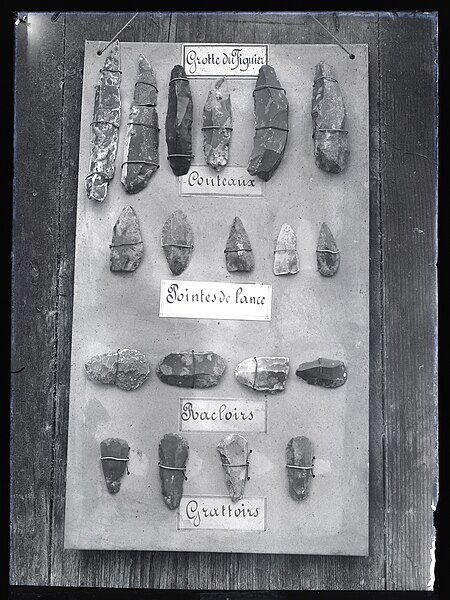 Grotte du Figuier
Couteaux
Pointes de lance
Racloirs
Grattoirs